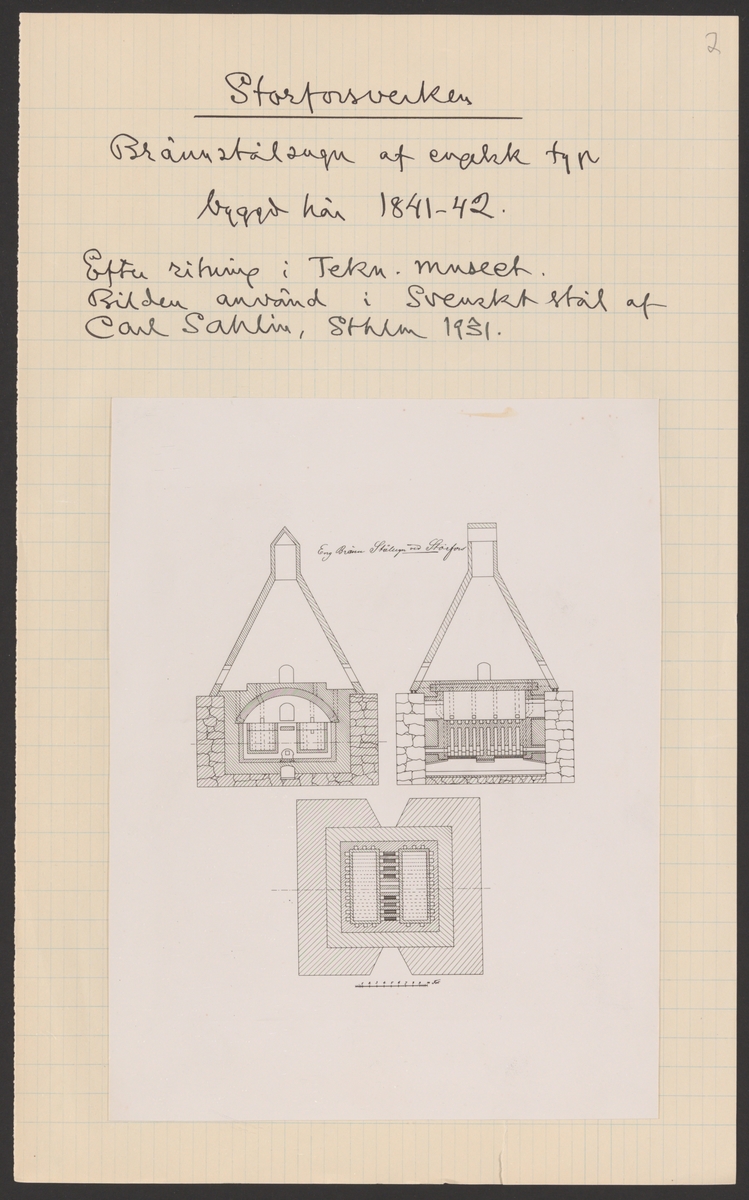 2
Storforsverken
Brännstålsugn af engelsk typ
byggd här 1841-42.
Efter ritning i Tekn. museet.
Bilden använd i Svenskt stål af
Carl Sahlin, Sthlm 1931.
Eng Bränn Stålugn vid Storfors